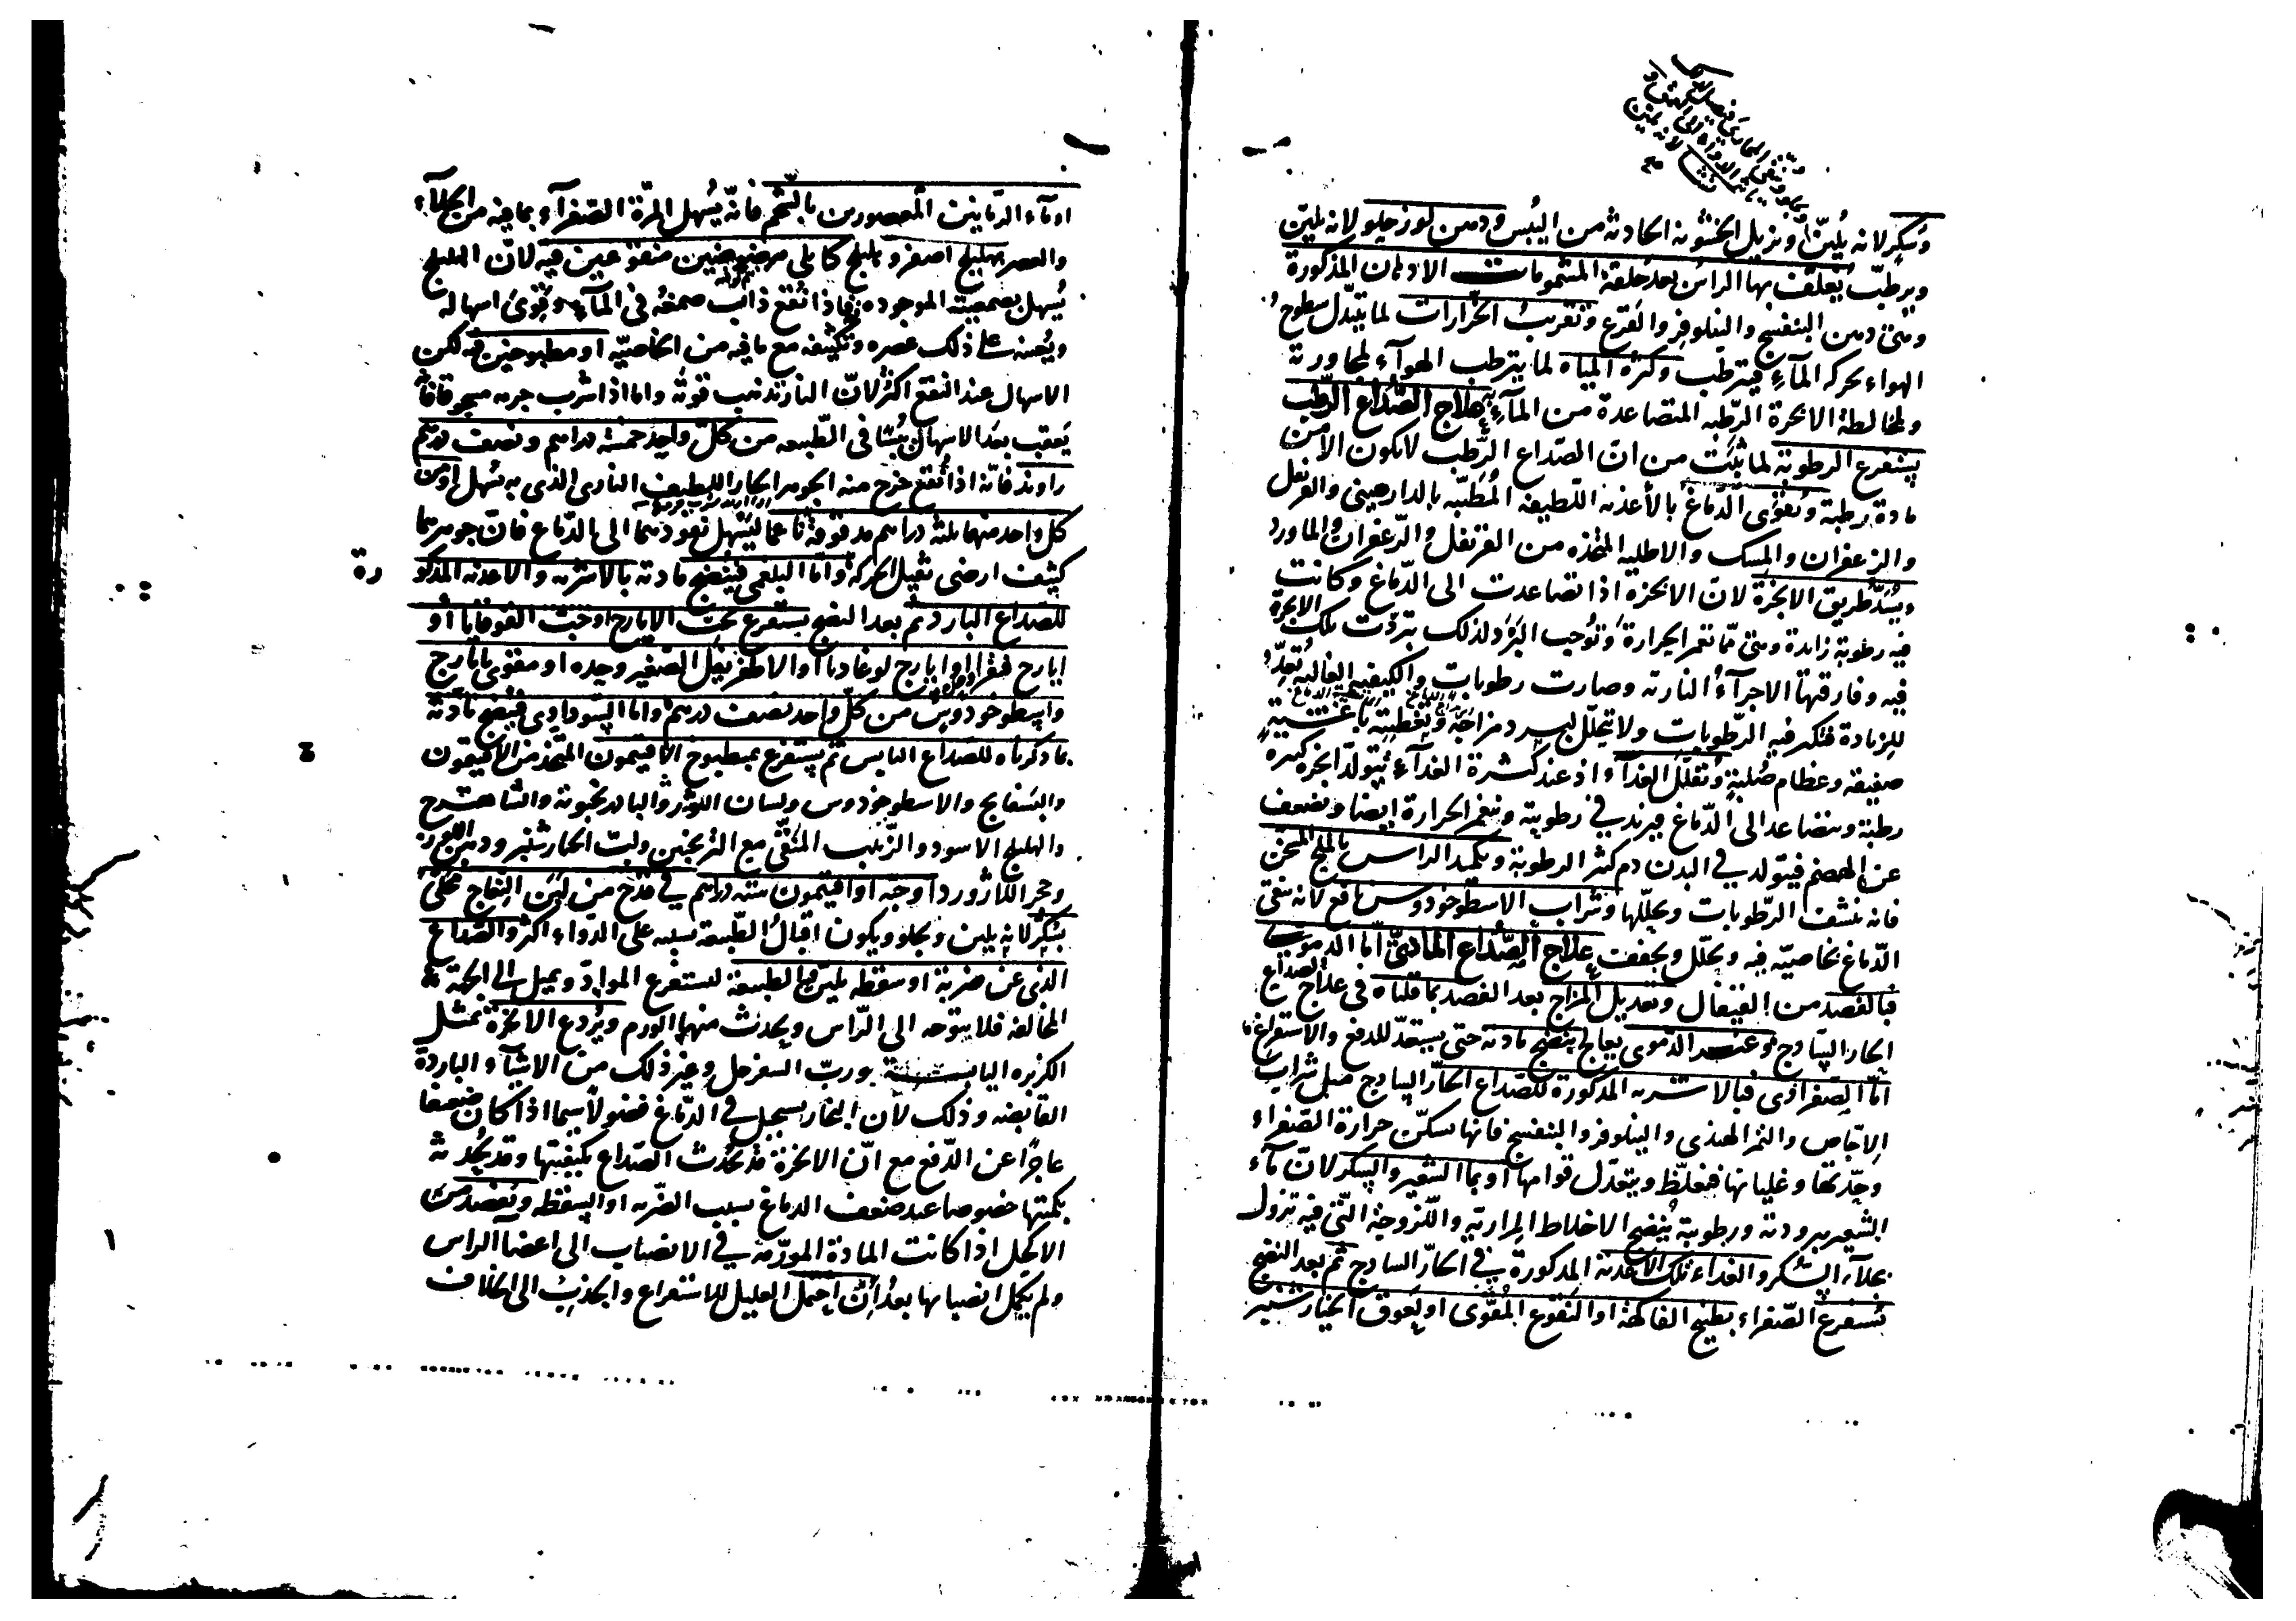 وسكر لانه يُليّن ويزيل الخشونة الحادثة من اليُبس ودهن لوز حلو لانه يليّن
ويرطّب يُغلّف بها الراس بعد حلقه المشمومات الادهان المذكورة
وهى دهن البنفسج والنيلوفر والقرع وتقريب الخرارات لما يتبدّل سطوح
الهواء بحركه المآء فيترطّب وكثرة المياه لما يترطب الهوآء لمجاورته
ولمخالطة الابخرة الرطبه المتصاعدة من المآء علاج الصُّداع الرطب
يستفرغ الرطوبة لما ثبت من ان الصّداع الرّطب لا يكون الا من
مادة رطبة وتقوّى الدّماغ بالأغذيه اللّطيفه المُطَيّبه بالدارصينى والقرنفل
والزعفران والمسك والاطليه المتخذه من القرنفل والزعفران والماورد
ويُسَدّ طريق الابخرة لان الابخره اذا تصاعدت الى الدّماغ وكانت
فيه رطوبة زايدة وهى ممّا تغمر الحرارة وتُوجب البَرْد لذلك بردت تلك الابخرة
فيه وفارقتها الاجزآء الناريه وصارت رطوبات والكيفيه الغالبة تُعِدّ
للزيادة فتكثر فيه الرّطوبات ولا تتحلّل لبرد مزاجه وتغطيته باغشية
صفيقه وعظام صُلبة وتقلّل الغذآء اذ عند كثرة الغذآء يتولّد ابخره كثيره
رطبة ويتصاعد الى الدّماغ فيزيد في رطوبته وينغمر الحرارة ايضا ويضعف
عن الهضم فيتولد في البدن دم كثير الرطوبة ويكمد الراس بالملح المسخن
فانه ينشف الرّطوبات ويحلّلها وشراب الاسطوخودوس نافع لانه ينقى
الدّماغ بخاصيّه فيه ويحلّل ويجفف علاج الصُّداع المادىّ امّا الدموى
فبالفصد من القيفال وتعديل المزاج بعد الفصد بما قلناه فى علاج الصداع
الحار السّاذج وغير الدّموى يعالج بنضج مادته حتى يستعدّ للدفع والاستفراغ
امّا الصّفراوى فبالاشربه المذكورة للصّداع الحارّ الساذج مثل شراب
الاجّاص والتمر الهندى والنيلوفر والبنفسج فانها تسكّن حرارة الصّفراء
وحِدّتها وغليانها فتغلّظ ويتعدّل قوامها او بمآء الشعير والسكر لانّ مآء
الشعير ببرودته ورطوبته يُنضج الاخلاط المِراريّة واللّزوجة التّى فيه تزول
بجلآء السّكر والغداء تلك الاغذيه المذكورة في الحارّ الساذج ثم بعد النضج
تستفرغ الصّفراء بطبيخ الفاكهة او النّقوع المُقوّى او لعوق الخيارشنبر
او مآء الرمّانين المعصورين بالشّحم فانّه يُسهل المِرّة الصّفرآء بما فيه من الجلآء
والعصر بهليلج اصفر وهليلج كابلى مرضوضين منقوعين فيه لانّ الهليلج
يُسهل بصمغيته الموجوده فيه فاذا نُقع ذاب صمغُه فى المآء وقَوِىَ اسهاله
ويُعينه على ذلك عصره وتكثيفه مع ما فيه من الخاصيّه او مطبوخين فيه لكن
الاسهال عند النقع اكثر لانّ النار تذهب قوته واما اذا شرب جرمه مسحوقا فانّه
يَعقب بعد الاسهال يُبسًا فى الطّبيعه من كلّ واحد خمسة دراهم ونصف درهم
راوند فانّه اذا نُقع خرج منه الجوهر الحارّ اللطيف النارى الذى به يُسْهل او من
كل واحد منهما ثلثه دراهم مدقوقة ناعما ليسْهل نفوذهما الى الدّماغ فانّ جوهرهما
كثيف ارضى ثقيل الحركة وامّا البلغمى فينضج مادته بالاشربه والاغذيه المذكورة
للصداع البارد ثم بعد النضج يستفرغ بحبّ الايارج او حبّ القوقايا او
ايارج فيقرا او ايارج لوغاذيا او الاطريفل الصّغير وحده او مقوى بايارج
واسطوخودوس من كلّ واحد نصف درهم واما السّوداوى فينضج مادته
بما ذكرناه للصّداع اليابس ثم يستفرغ بمطبوخ الافتيمون المتخذ من الافتيمون
والبسفايج والاسطوخودوس ولسان الثّور والبادرنجبوية والشّاهترج
والهليلج الاسود والزّبيب المنقّى مع الترنجبين ولبّ الخيارشنبر ودهن اللوز
وحجر اللازورد او حبّه او افتيمون ستّه دراهم في قدح من لَبَن النّعاج محلّى
بسكّر لانه يلين ويجلو ويكون اقبال الطّبيعة بسببه على الدّواء اكثر والصّداع
الذى عن ضربة او سقطه يليّن الطبيعة لتستفرغ الموادّ ويميل الى الجهة
المخالفه فلا يتوجّه الى الرّاس ويحدث منها الورم ويُردع الابخرة بمثل
الكزبره اليابسة وربّ السفرجل وغير ذلك من الاشيآء الباردة
القابضه وذلك لان البخار يستحيل في الدّماغ فضولًا سيما اذا كان ضعيفا
عاجزًا عن الدّفع مع انّ الابخرة قد تُحْدث الصّداع بكيفيّتها وقد تُحْدثه
بكميّتها خصوصا عند ضعف الدماغ بسبب الضّربه او السقطه وتفصد من
الاكحل اذا كانت المادة المورّمة في الانصباب الى اعضآء الراس
ولم يكمل انصبابها بعدُ اِنْ احتمل العليل للاستفراغ والجذب الى الخلاف